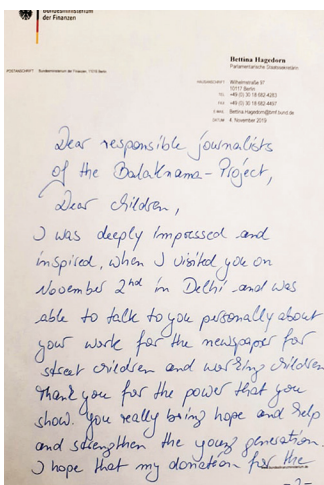 Bundesministerium
der Finanzen
Bettina Hagedorn
Parlamentarische Staatssekretärin
POSTANSCHRIFT Bundesministerium der Finanzen, 11016 Berlin
HAUSANSCHRIFT Wilhelmstraße 97
10117 Berlin
TEL +49 (0) 30 18 682-4283
FAX +49 (0) 30 18 682-4497
E-MAIL Bettina.Hagedorn@bmf.bund.de
DATUM 4. November 2019
Dear responsible journalists
of the Balaknama-Project,
Dear children,
I was deeply impressed and
inspired, when I visited you on
November 2nd in Delhi and was
able to talk to you personally about
your work for the newspaper for
street children and working children
Thank you for the power that you
show. You really bring hope and help
and strengthen the young generation.
I hope that my donation for the
-2-